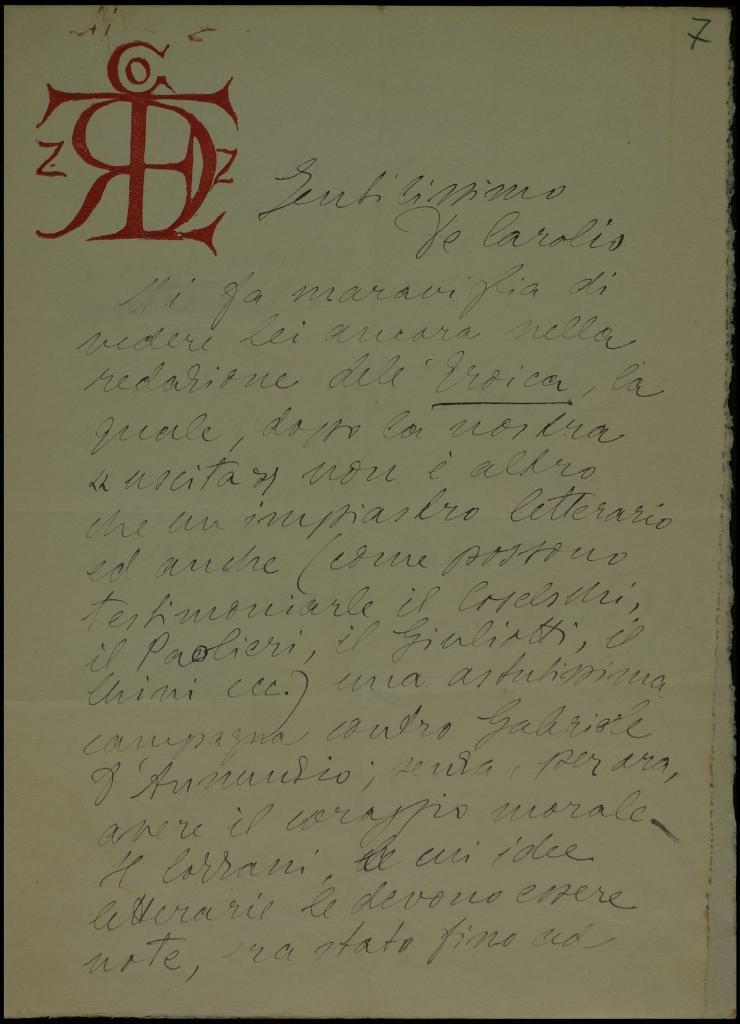 7
Gentilissimo
De Carolis
Mi fa maraviglia di
vedere lei ancora nella
redazione dell'Eroica, la
quale, dopo la nostra
« uscita » non è altro
che un impiastro letterario
ed anche (come possono
testimoniarle il Coselschi,
il Paolieri, il Giuliotti, il
Chini ecc.) una astutissima
campagna contro Gabriele
D'Annunzio; senza, per ora,
avere il coraggio morale
Il Cozzani, le cui idee
letterarie le devono essere
note, era stato fino ad